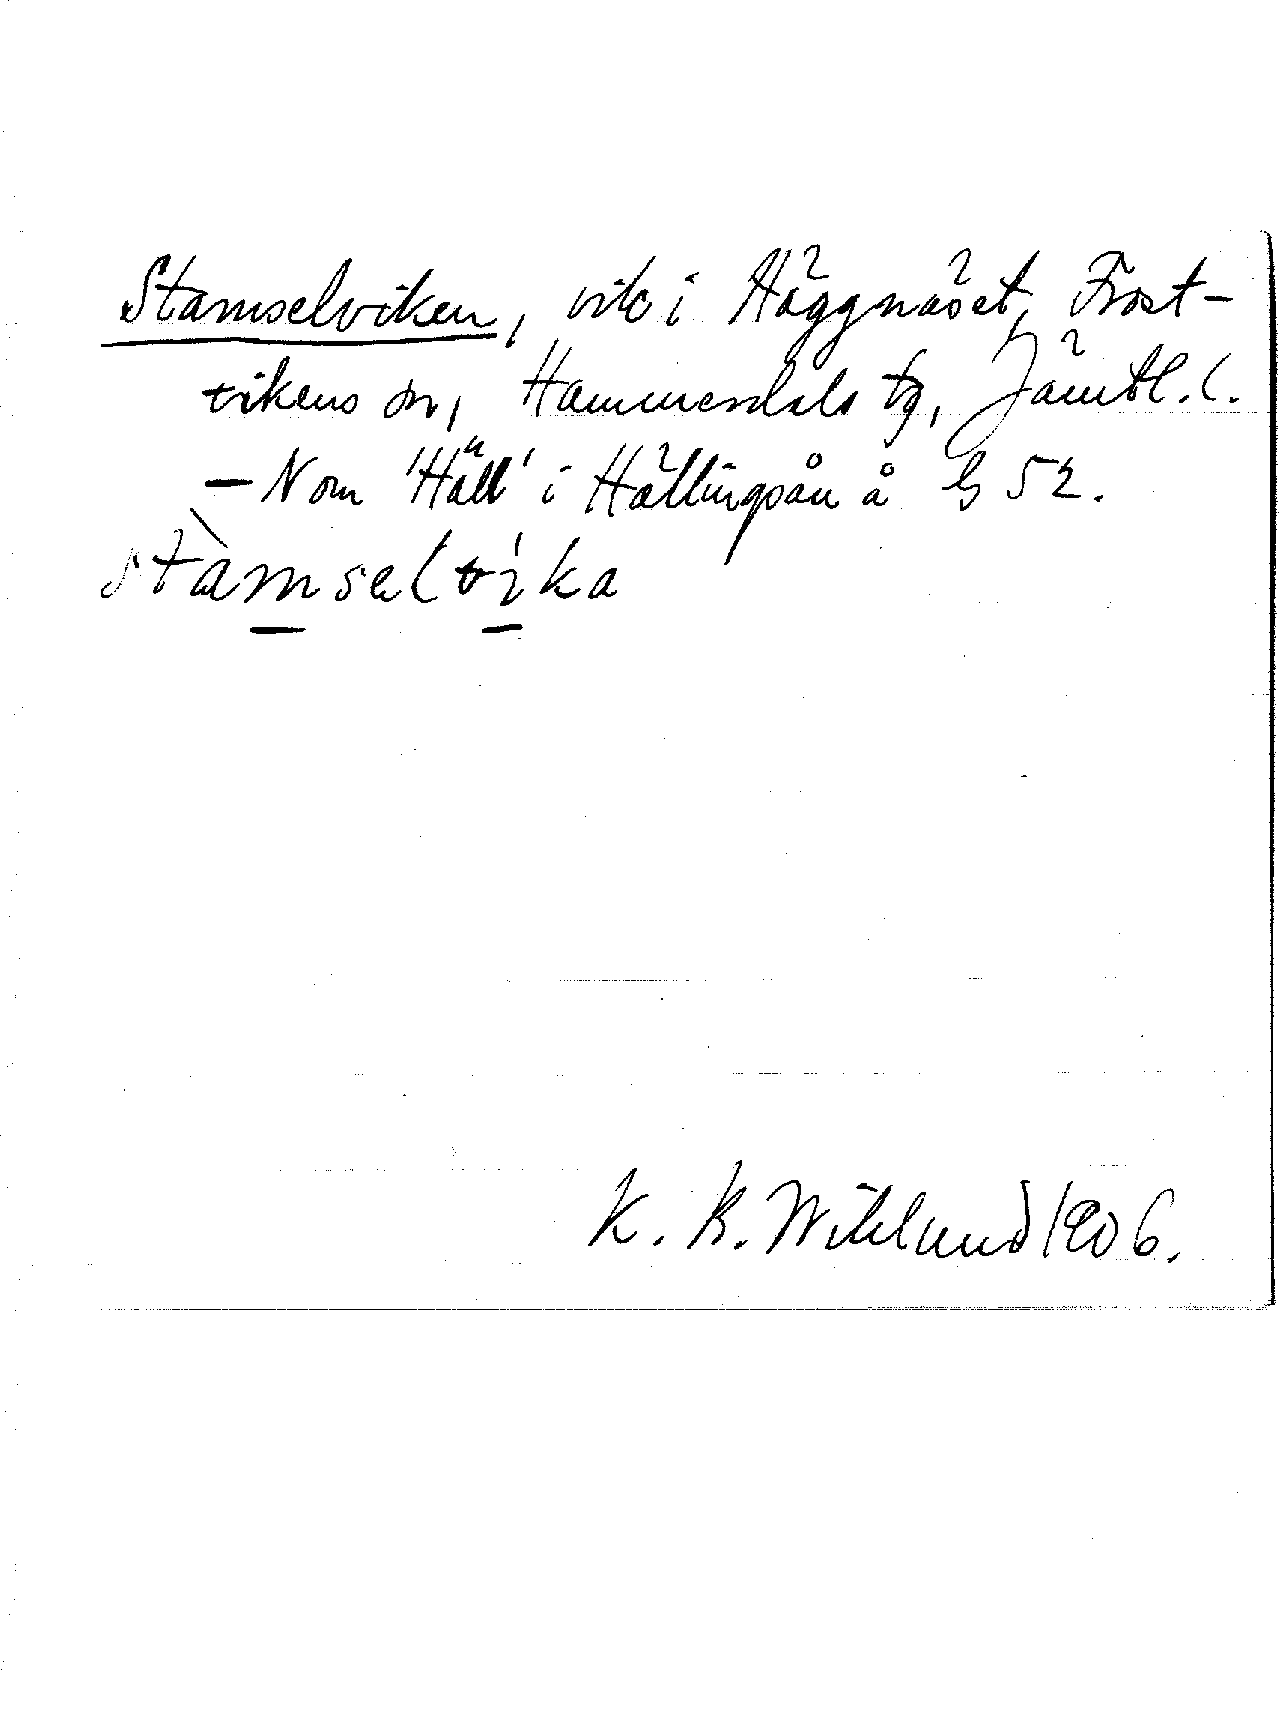 Stamselviken, vik i Häggnäset, Frost-
vikens sn, Hammerdals tg, Jämtl. l.
— N om 'Häll' i Hällingsån å bl 52.
stàmselvíka
K. B. Wiklund 1906.